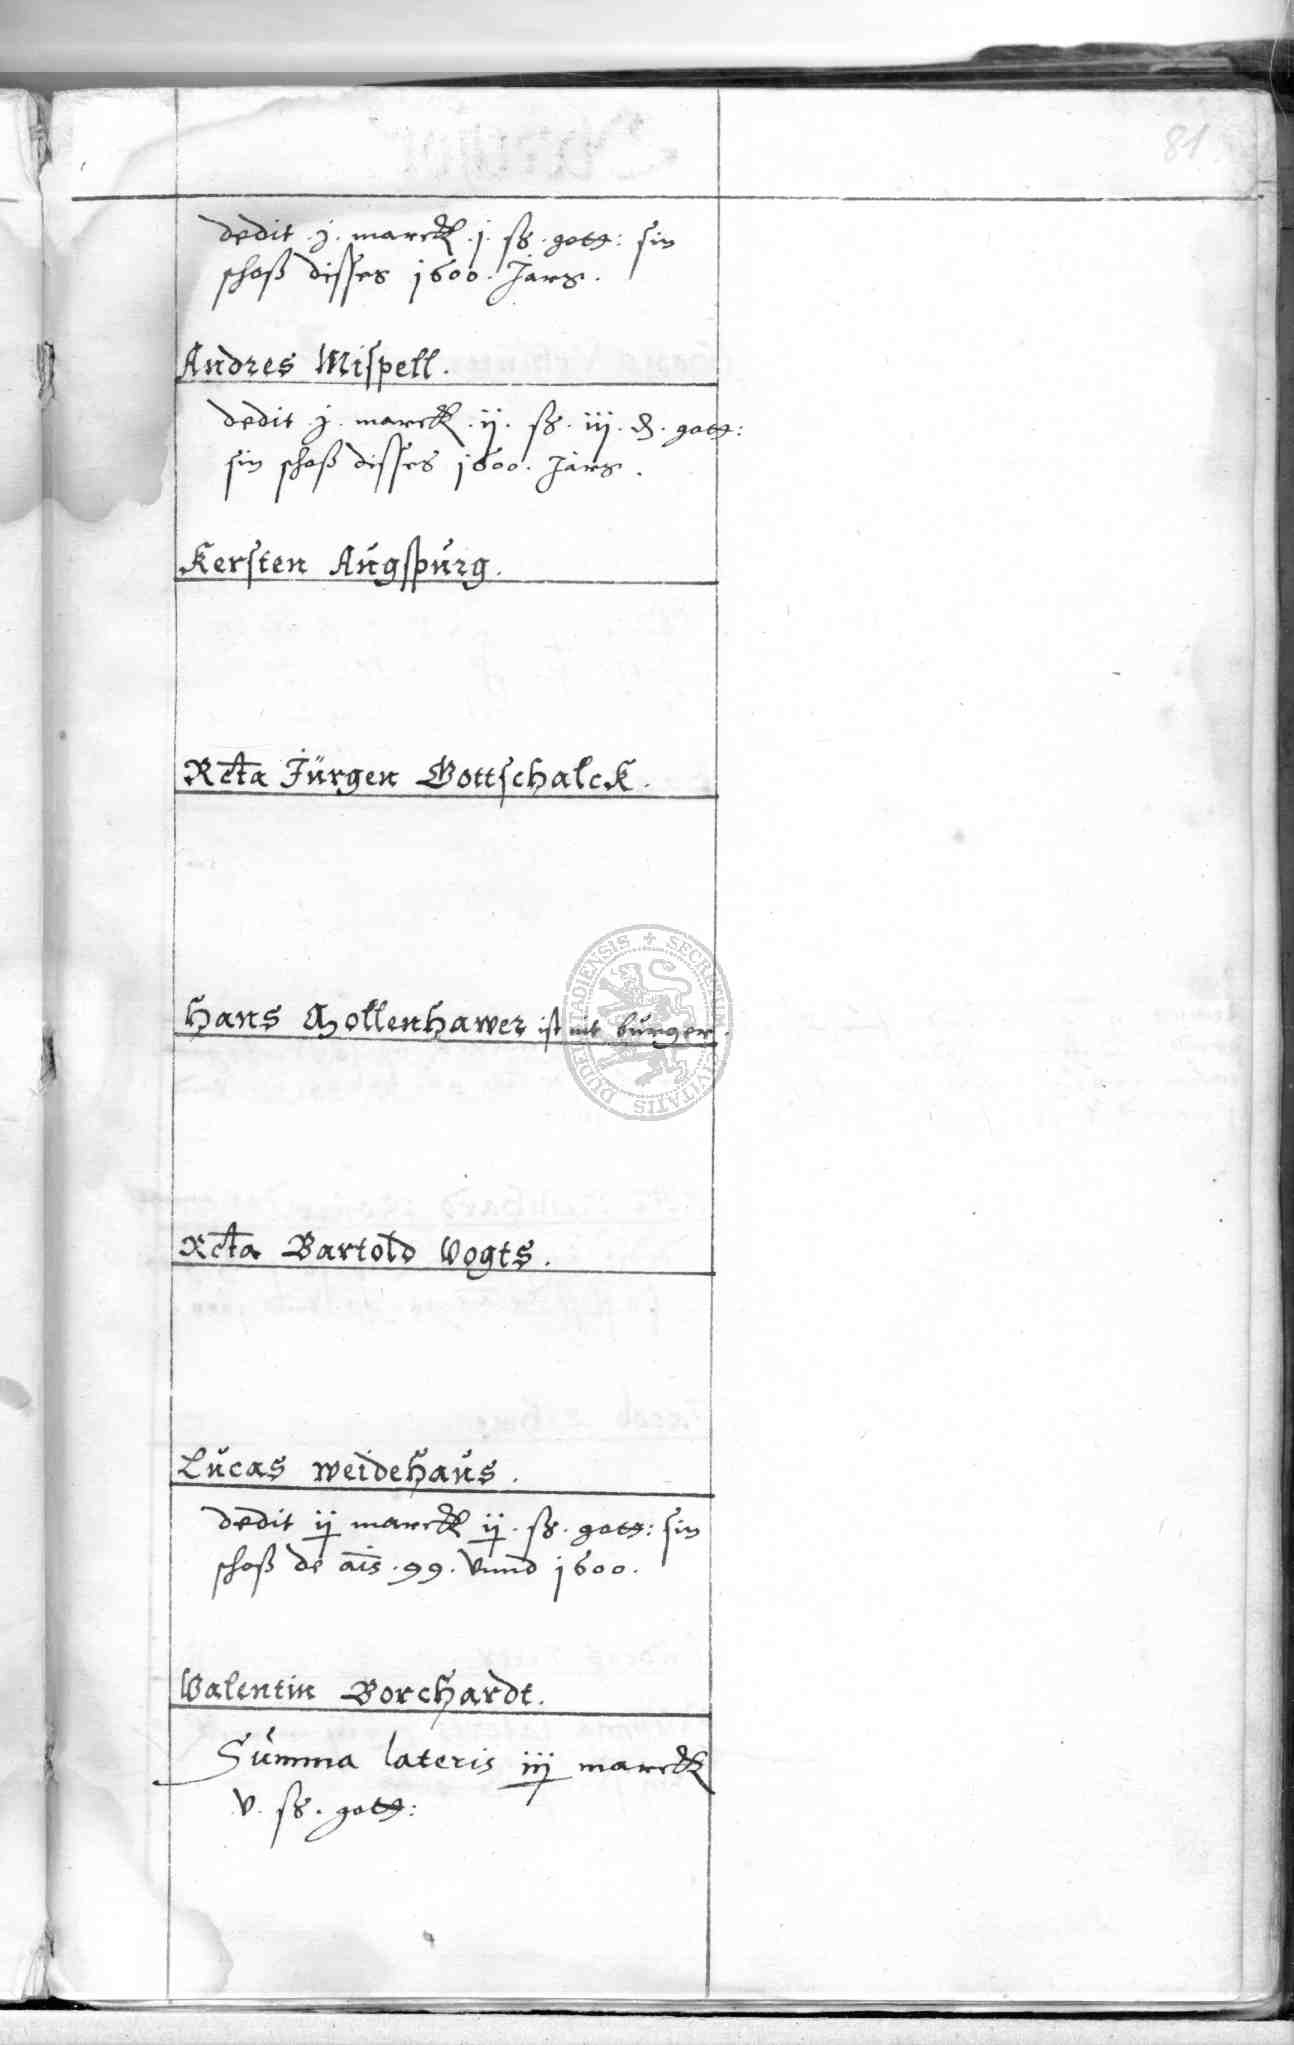 81
dedit .j. marck .j. ß. gott: sin
schoß disses 1600. Jars.
Andres Mispell.
dedit .j. marck .ij. ß. iij. ₰. gott:
sin schoß disses 1600. Jars.
Kersten Augspurg.
Rcta Jürgen Gottschalck.
Hans Mollenhawer ist nit burger.
Rcta Bartold Vogts.
Lucas Weidehaus.
dedit ij marck ij. ß. gott: sin
schoß de ais .99. vnnd 1600.
Valentin Borchardt.
Summa lateris iij marck
v. ß. gott:
SECRETUM CIVITATIS DUDERSTADIENSIS